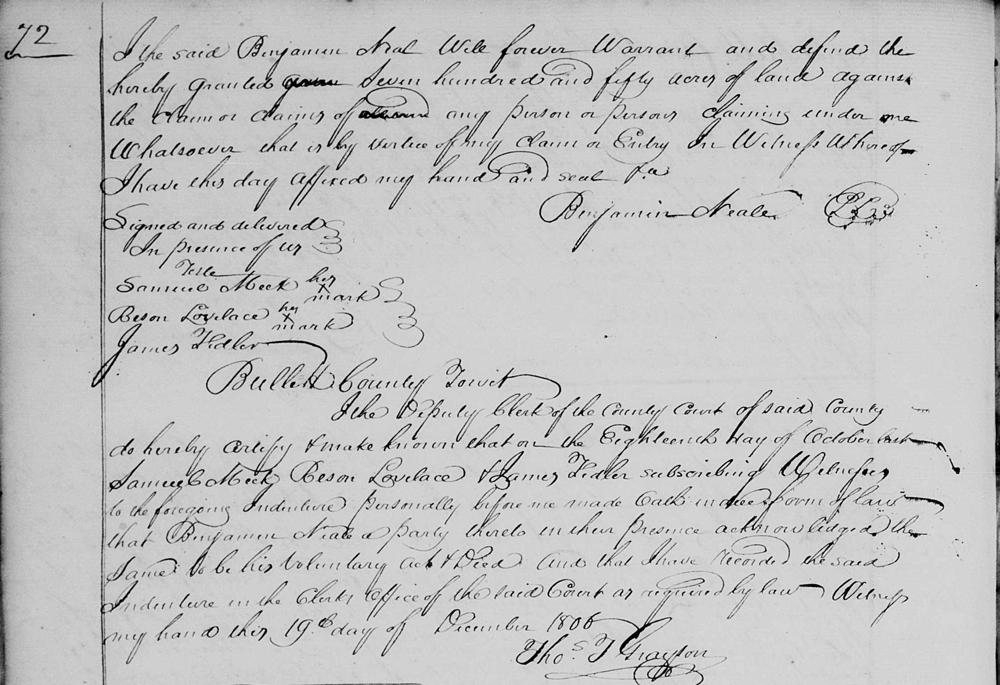 72
I the said Benjamin Neal Will forever Warrant and defend the
hereby granted seven hundred and fifty acres of land against
the claim or claims of any person or persons claiming under me
Whatsoever that is by vertice of my claim or Entry In Witness Whereof
I have this day affixed my hand and seal
Benjamin Neale
Signed and delivered
In presence of us
Teste
Samuel Meek his x mark
Beson Lovelace his x mark
James Fidler
Bullett County Towit
I the Deputy Clerk of the County Court of said County
do hereby certify & make known that on the Eighteenth day of October last
Samuel Meek Beson Lovelace & James Fidler subscribing Witnesses
to the foregoing Indenture personally before me made Oath in due form of law
that Benjamin Neale a party thereto in their presence acknowledged the
Same to be his Voluntary act & Deed and that I have recorded the said
Indenture in the Clerks Office of the said Court as required by law Witness
my hand this 19th day of December 1806
Thos. T Grayson